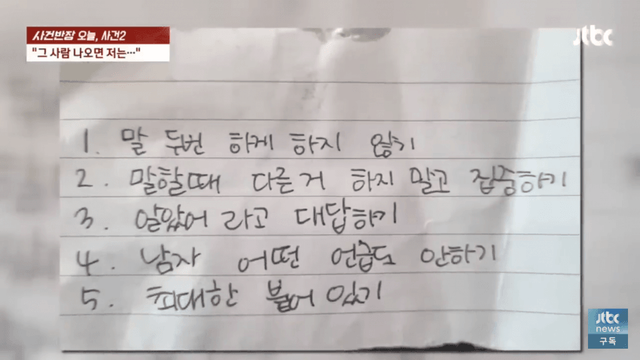 사건반장 오늘, 사건2
"그 사람 나오면 저는…"
jtbc
1. 말 두번 하게 하지 않기
2. 말할때 다른거 하지 말고 집중하기
3. 알았어 라고 대답하기
4. 남자 어떤 언급도 안하기
5. 최대한 붙어 있기
jtbc
news
구독